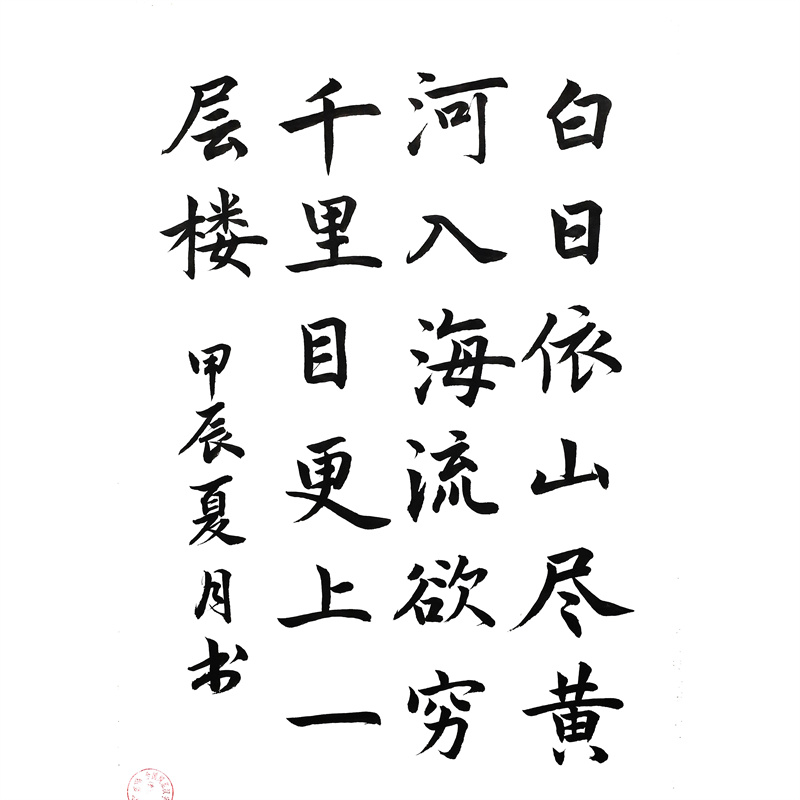 白日依山尽黄
河入海流欲穷
千里目更上一
层楼
甲辰夏月书